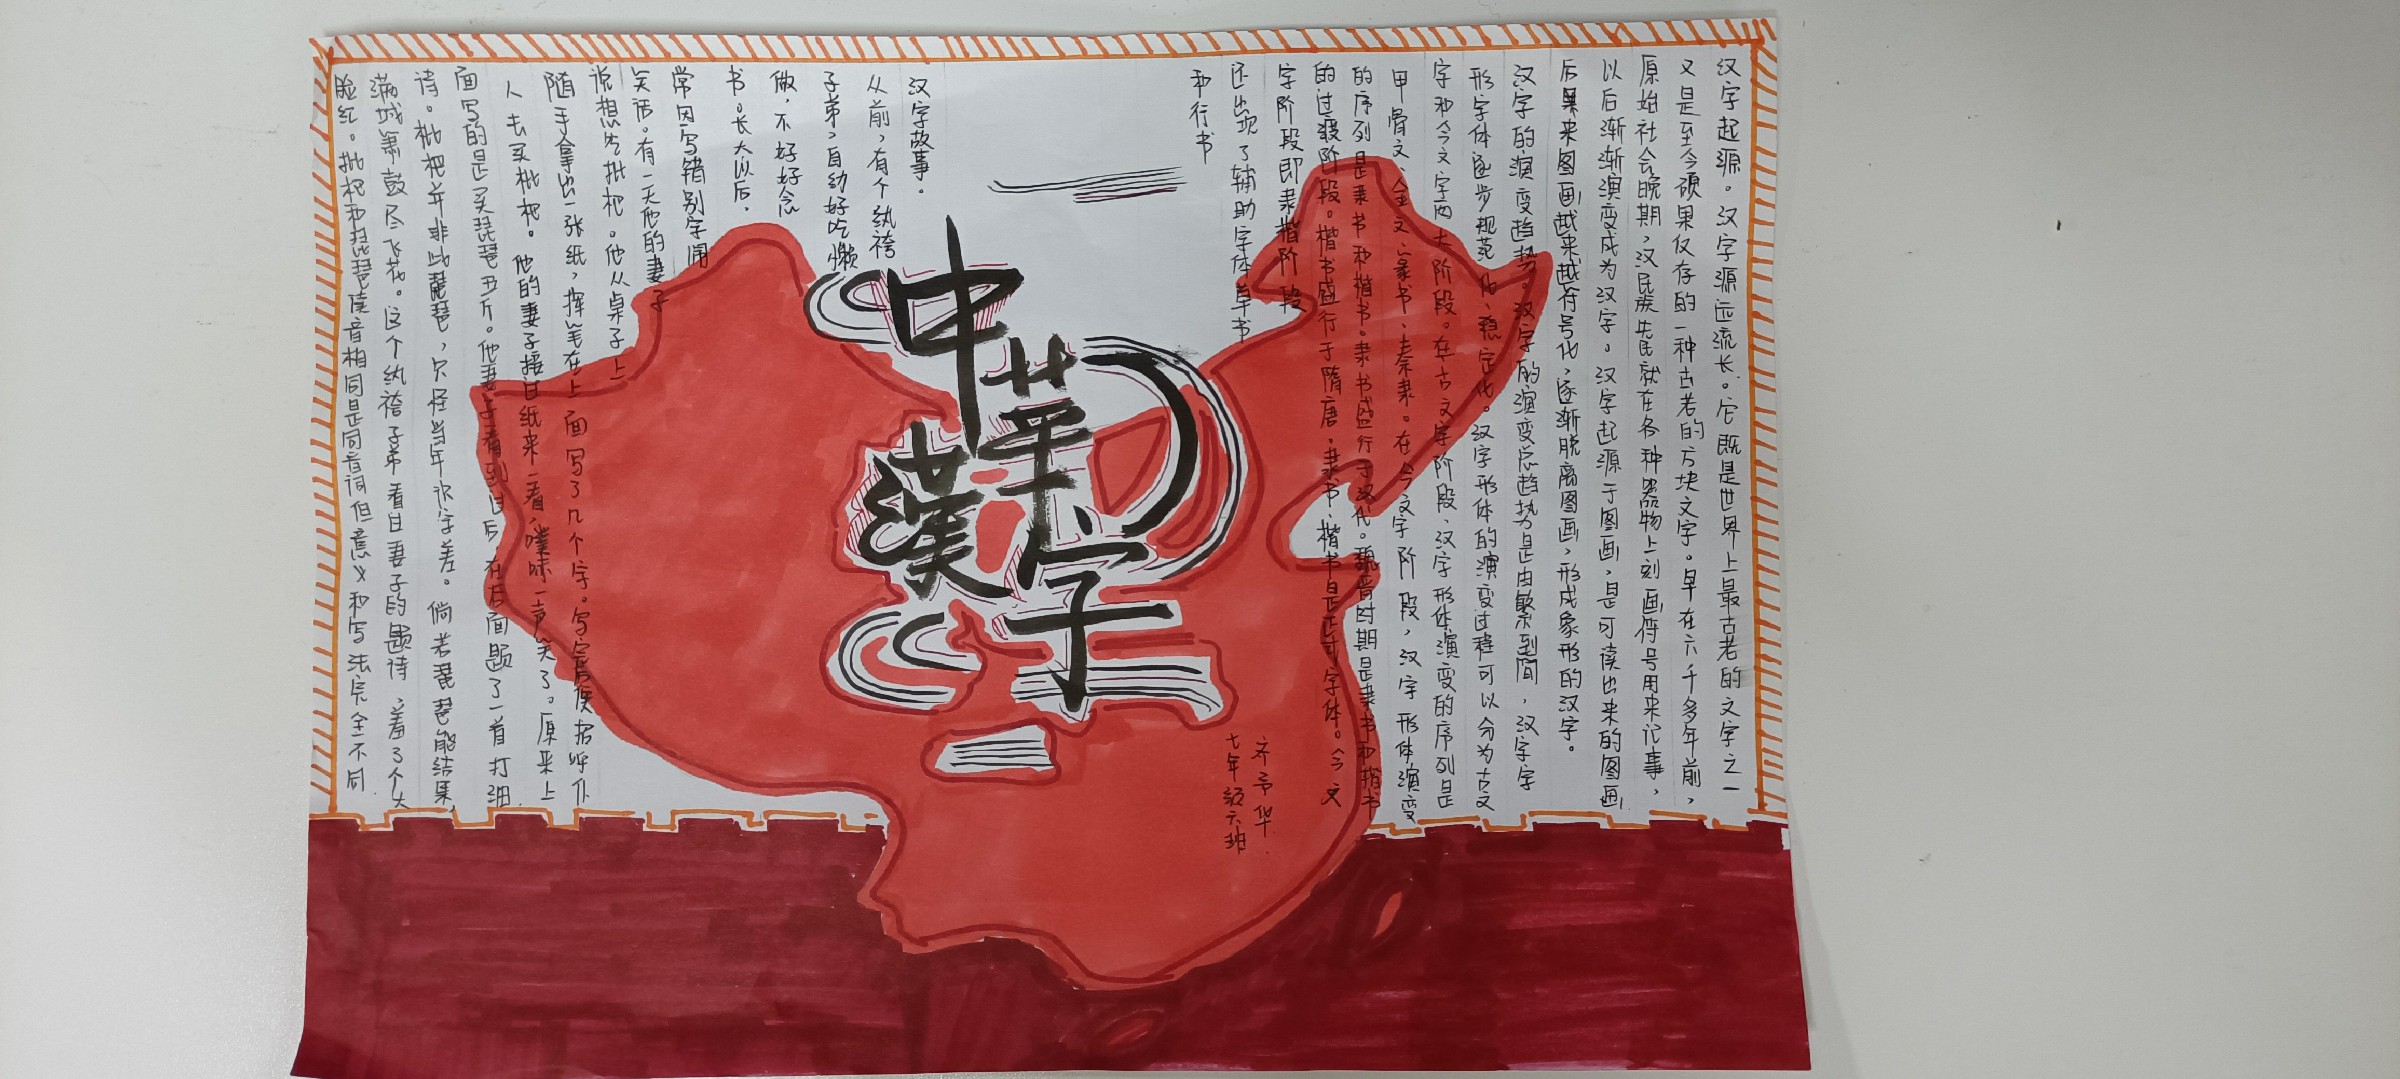 汉字起源。汉字源远流长。它既是世界上最古老的文字之一
又是至今硕果仅存的一种古老的方块文字。早在六千多年前，
原始社会晚期，汉民族先民就在各种器物上刻画符号用来记事，
以后渐渐演变成为汉字。汉字起源于图画，是可读出来的图画
后来图画越来越符号化，逐渐脱离图画，形成象形的汉字。
汉字的演变趋势。汉字的演变总趋势是由繁到间，汉字字
形字体逐步规范化、稳定化。汉字形体的演变过程可以分为古文
字和今文字两大阶段。在古文字阶段、汉字形体演变的序列是
甲骨文、金文、篆书、秦隶。在今文字阶段，汉字形体演变
的序列是隶书和楷书。隶书盛行于汉代。魏晋时期是隶书和楷书
的过渡阶段。楷书盛行于隋唐。隶书、楷书是正式字体。今文
字阶段即隶楷阶段
还出现了辅助字体草书
和行书
中华
漢字
汉字故事。
从前，有个纨袴
子弟，自幼好吃懒
做，不好好念
书。长大以后，
常因写错别字闹
笑话。有一天他的妻子
说想吃枇杷。他从桌子上
随手拿出一张纸，挥笔在上面写了几个字。写完后便招呼仆
人去买枇杷。他的妻子接过纸来一看，噗哧一声笑了。原来上
面写的是买琵琶五斤。他妻子看到过后，在后面题了一首打油
诗。枇杷并非此琵琶，只怪当年识字差。倘若琵琶能结果，
满城箫鼓尽飞花。这个纨袴子弟看过妻子的题诗，羞了个大
脸红。枇杷和琵琶读音相同是同音词但意义和写法完全不同
七年级六班